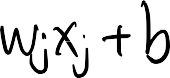 wⱼxⱼ + b